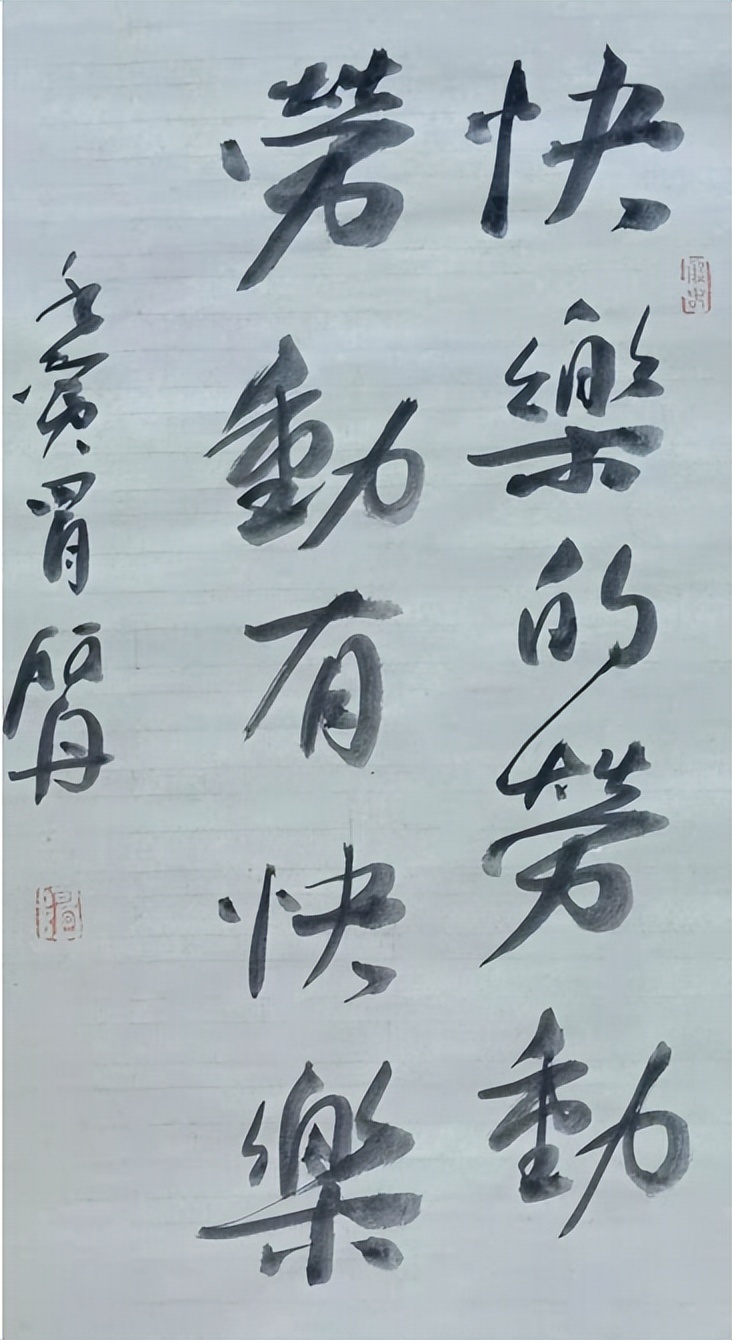 快樂的勞動
勞動有快樂
壬寅胃